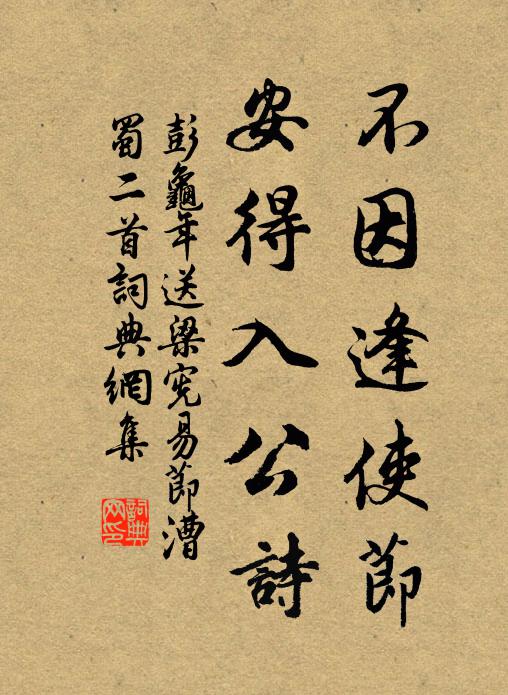 不因逢使節
安得入公詩
彭龜年送梁宪易節漕
蜀二首詞典網集
詞典
网印